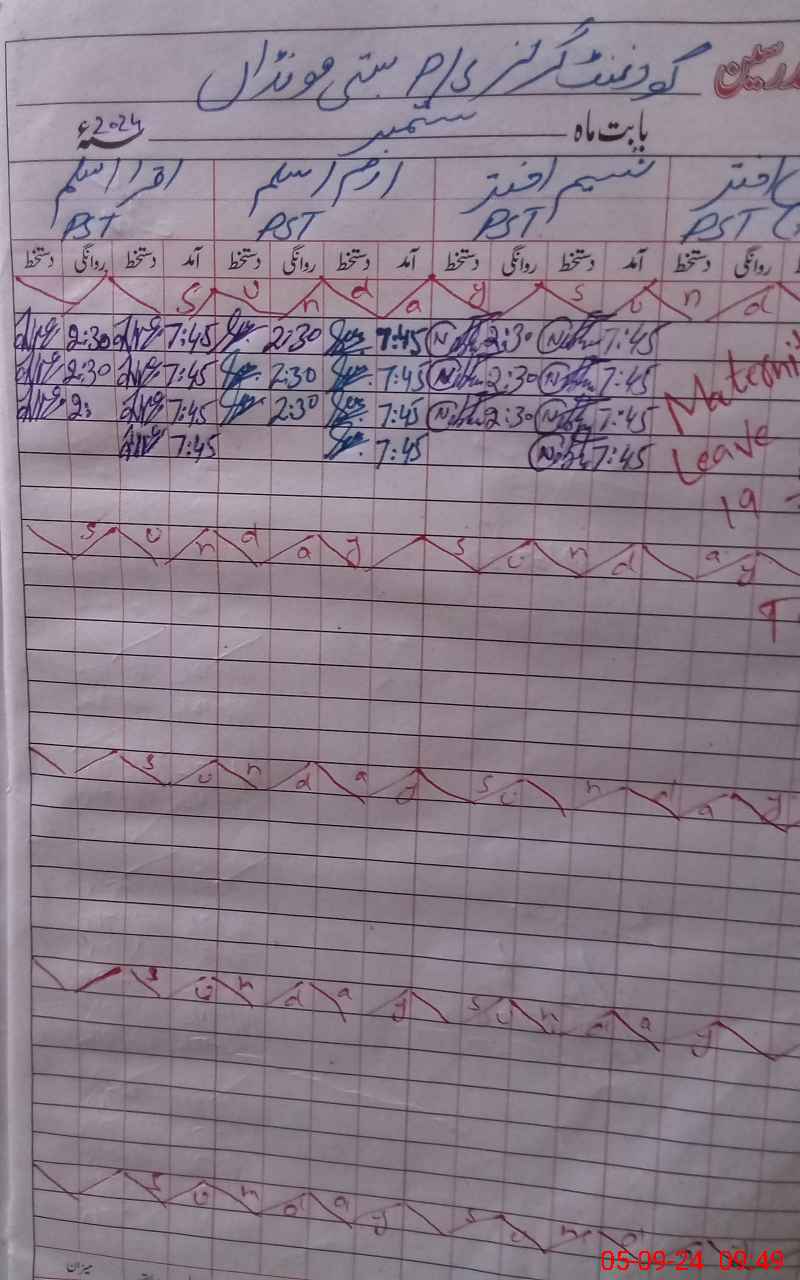 مدرسین گورنمنٹ گرلز P/S بستی مونڈاں
بابت ماہ ستمبر 2024ء
اختر نسیم اختر ارم اسلم اقرا اسلم
PST PST PST PST
روانگی دستخط آمد دستخط روانگی دستخط آمد دستخط روانگی دستخط آمد دستخط روانگی دستخط
S u n d a y s u n d
2:30 7:45 2:30 7:45 2:30 7:45
2:30 7:45 2:30 7:45 2:30 7:45
2: 7:45 2:30 7:45 2:30 7:45
7:45 7:45 7:45
Materni
Leave
19
S u n d a y s u n d a y
T
S u n d a y s u n d a y
S u n d a y s u n d a y
S u n d a y s u n d
میزان
05-09-24 09:49